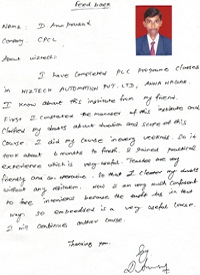 Feed back
Name : D. Arun Prasad
Company : CPCL
About wiztech:
I have completed PLC programe classes
in WIZTECH AUTOMATION PVT. LTD, ANNA NAGAR.
I know about this institute from my friend.
First I contacted the manager of this institute and
clarified my doubts about duration and scope of this
course. I did my course in every weekends. So it
took about 6 months to finish. I gained practical
experience which is very useful. Teachers are very
friendly and interactive. So that I clear my doubts
without any hesitation. Now I am very much confident
to face interviews because the
way. So embedded is a very useful course.
I will continues another course.
Thanking you.